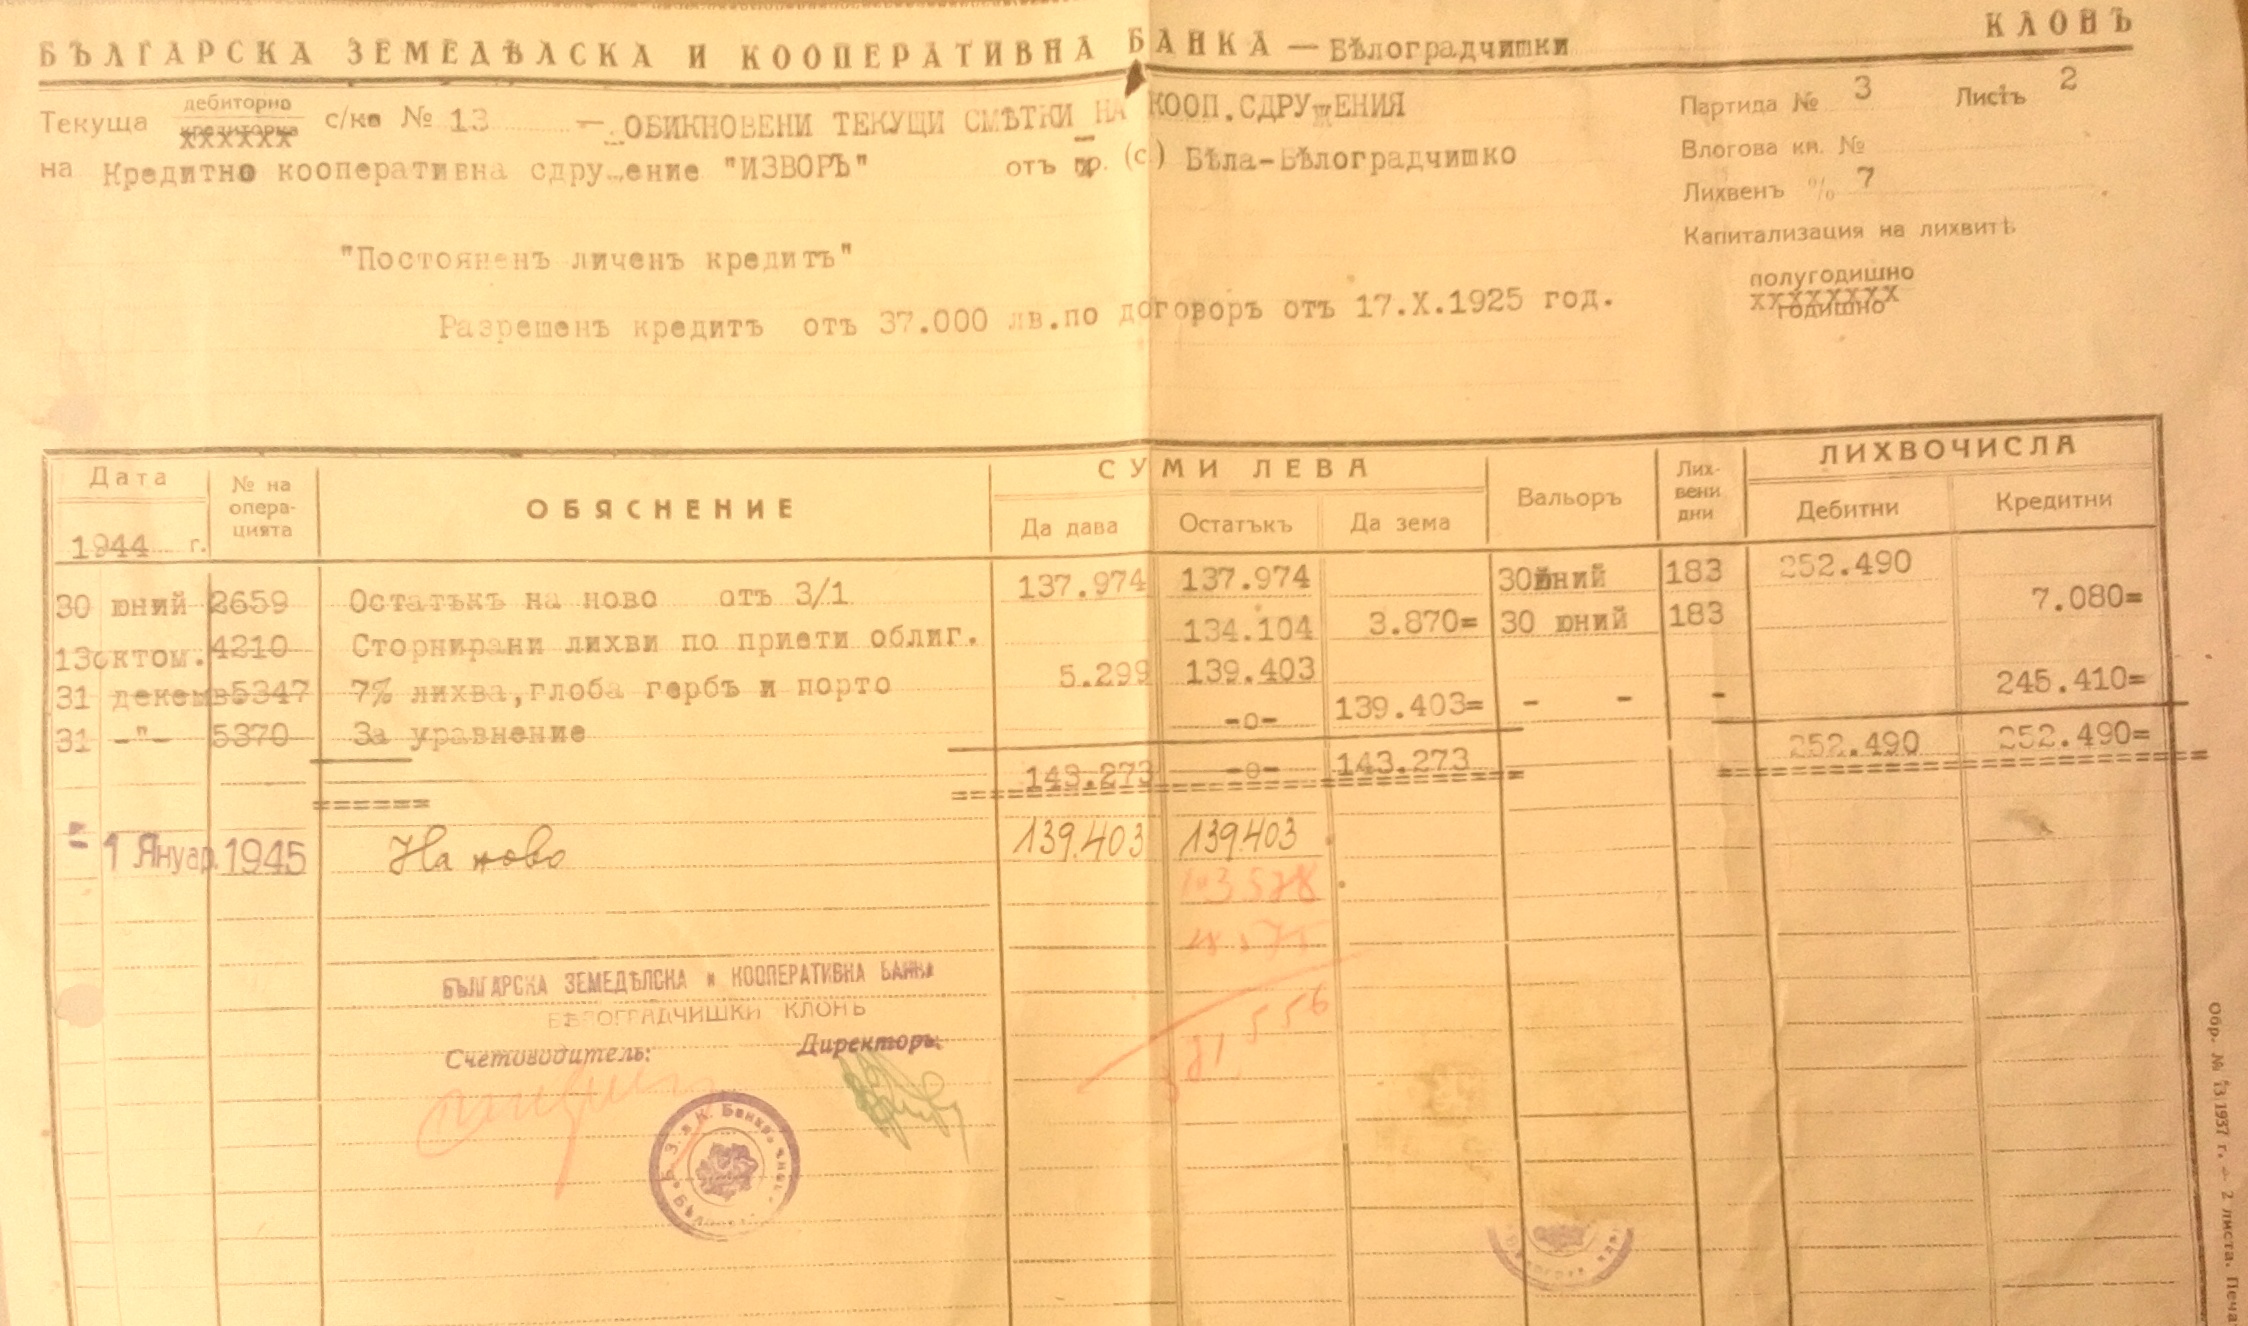 БЪЛГАРСКА ЗЕМЕДѢЛСКА И КООПЕРАТИВНА БАНКА — Бѣлоградчишки КЛОНЪ
Текуща дебиторно кредиторна с/ка № 13 — ОБИКНОВЕНИ ТЕКУЩИ СМѢТКИ НА КООП.СДРУЖЕНИЯ
Партида № 3 Листъ 2
на Кредитно кооперативна сдружение "ИЗВОРЪ" отъ гр. (с.) Бѣла-Бѣлоградчишко
Влогова кн. №
Лихвенъ % 7
Капитализация на лихвитѣ
"Постояненъ личенъ кредитъ"
полугодишно
годишно
Разрешенъ кредитъ отъ 37.000 лв.по договоръ отъ 17.X.1925 год.
Дата № на операцията ОБЯСНЕНИЕ СУМИ ЛЕВА Вальоръ Лихвени дни ЛИХВОЧИСЛА
1944 г. Да дава Остатъкъ Да зема Дебитни Кредитни
30 юний 2659 Остатъкъ на ново отъ 3/1 137.974 137.974 30юний 183 252.490
13октом. 4210 Сторнирани лихви по приети облиг. 134.104 3.870= 30 юний 183 7.080=
31 декемв 5347 7% лихва,глоба гербъ и порто 5.299 139.403 245.410=
31 -"- 5370 За уравнение -о- 139.403= - - -
143.273 -о- 143.273 252.490 252.490=
1 Януар. 1945 На ново 139.403 139.403
БЪЛГАРСКА ЗЕМЕДѢЛСКА и КООПЕРАТИВНА БАНКА
БѢЛОГРАДЧИШКИ КЛОНЪ
Счетоводитель: Директоръ:
Б. З. и К. Банка
Обр. № 13 1937 г. — 2 листа. Печа